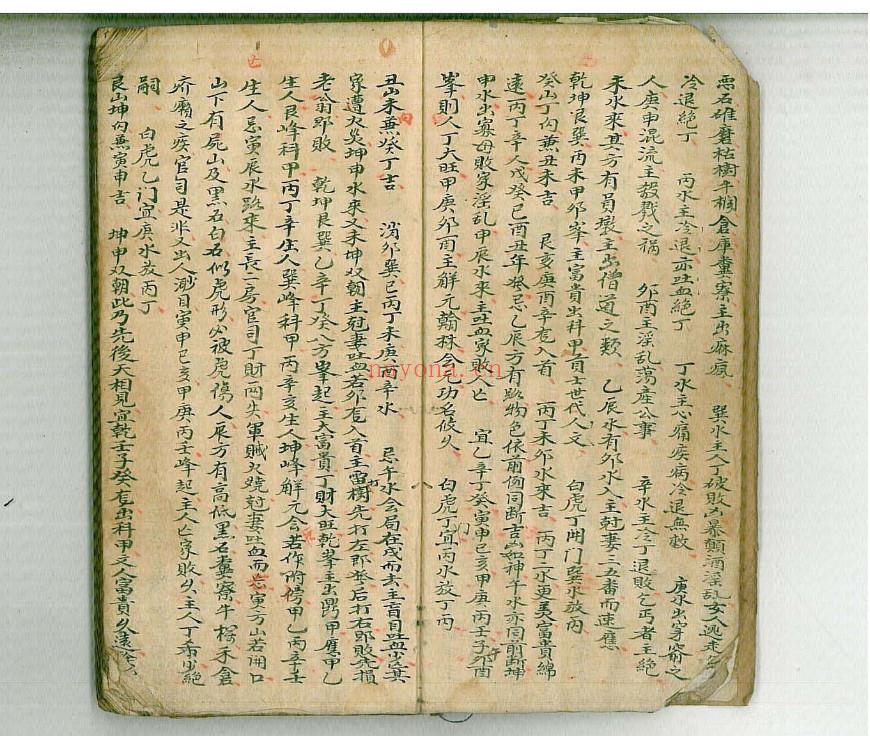 惡石碓磨枯樹牛欄倉庫糞寮主出麻瘋　巽水主人丁破敗凶暴顛酒淫乱女人逃走
冷退絕丁　丙水主冷退亦吐血絕丁　丁水主心痛疾病冷退無救　庚水出穿窬之
人庚申混流主殺戮之禍　夘酉主淫乱蕩産公事　辛水主冷丁退敗乞丐者主絕
未水來其方有員墩主出僧道之類　乙辰水有夘水入主尅妻三五番而速應
乾坤艮巽丙未甲夘峯主富貴出科甲首士世代人文　白虎丁門開巽水放丙
癸山丁向兼丑未吉　艮亥庚酉辛竜入首　丙丁未夘水來吉　丙丁二水更美富貴綿
遠丙丁辛人戌癸巳酉丑年發忌乙辰方有路物色依前倒同断吉凶如神午水亦同前断坤
申水出寡母敗家淫乱甲辰水來主吐血家敗人亡　宜乙辛丁癸寅申巳亥甲庚丙壬子夘酉
峯則人丁大旺甲庚夘酉主解元翰林会元功名悠久　白虎丁门宜丙水放丁丙
八
丑山未兼癸丁吉　消夘巽巳丙丁未庚酉辛水　忌午水会局在戌而去主盲目吐血少亡其
家遭火災坤申水來又未坤双朝主尅妻吐血若夘竜入首主雷樹先打左即發后打右即敗先損
老翁即敗　乾坤艮巽乙辛丁癸八方峯起主大富貴丁財大旺乾峯主出爵甲應甲乙
生人艮峰科甲丙丁辛生人巽峰科甲丙辛亥生人坤峰解元会若作附傍甲乙丙辛壬
生人忌寅辰水路來主長二房官司丁財两失軍賊火燒尅妻吐血而亡寅方山若開口
山下有屍山及黑石白石似虎形必被虎傷人辰方有高低黑石糞寮牛欄禾倉
疥癩之疾官司是非又出人渺目寅申巳亥甲庚丙壬峰起主人亡家敗久主人丁希少絕
嗣　白虎乙门宜庚水放丙丁
艮山坤向兼寅申吉　坤申双朝此乃先後天相見宜乾壬子癸竜出科甲文人富貴久遠
nayona.cn